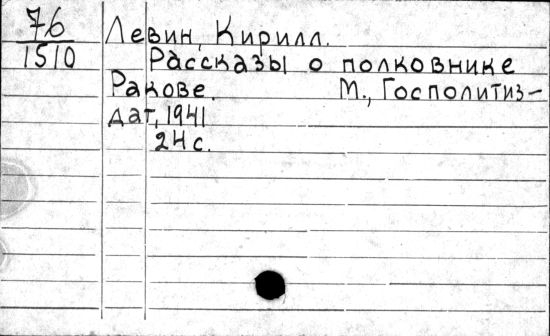 76
1510
Левин, Кирилл.
Рассказы о полковнике
Ракове. М., Госполитиз-
дат, 1941
24 с.